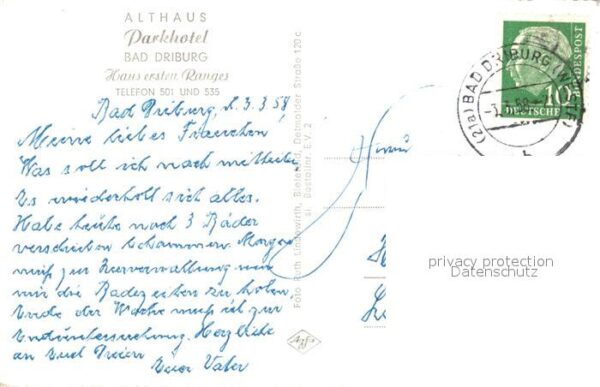 ALTHAUS
Parkhotel
BAD DRIBURG
Haus ersten Ranges
TELEFON 501 UND 535
Bad Driburg, d. 3.3.58
Meine lieben
Was soll ich noch mitteilen
Es wiederholt sich alles.
Habe heute noch 3 Bäder
verschrieben bekommen. Morgen
muß zur Kurverwaltung um
mir die Badezeiten zu holen,
Ende der Woche muß ich zur
Enduntersuchung. Herzliche
an Euch Dreien
Euer Vater
Foto Ruth Lindewirth, Bielefeld, Detmolder Straße 120 c
Postamt: E.V. 2
Agfa
(21a) BAD DRIBURG (WESTF)
-3.3.58
b
10
DEUTSCHE
BUNDESPOST
privacy protection
Datenschutz